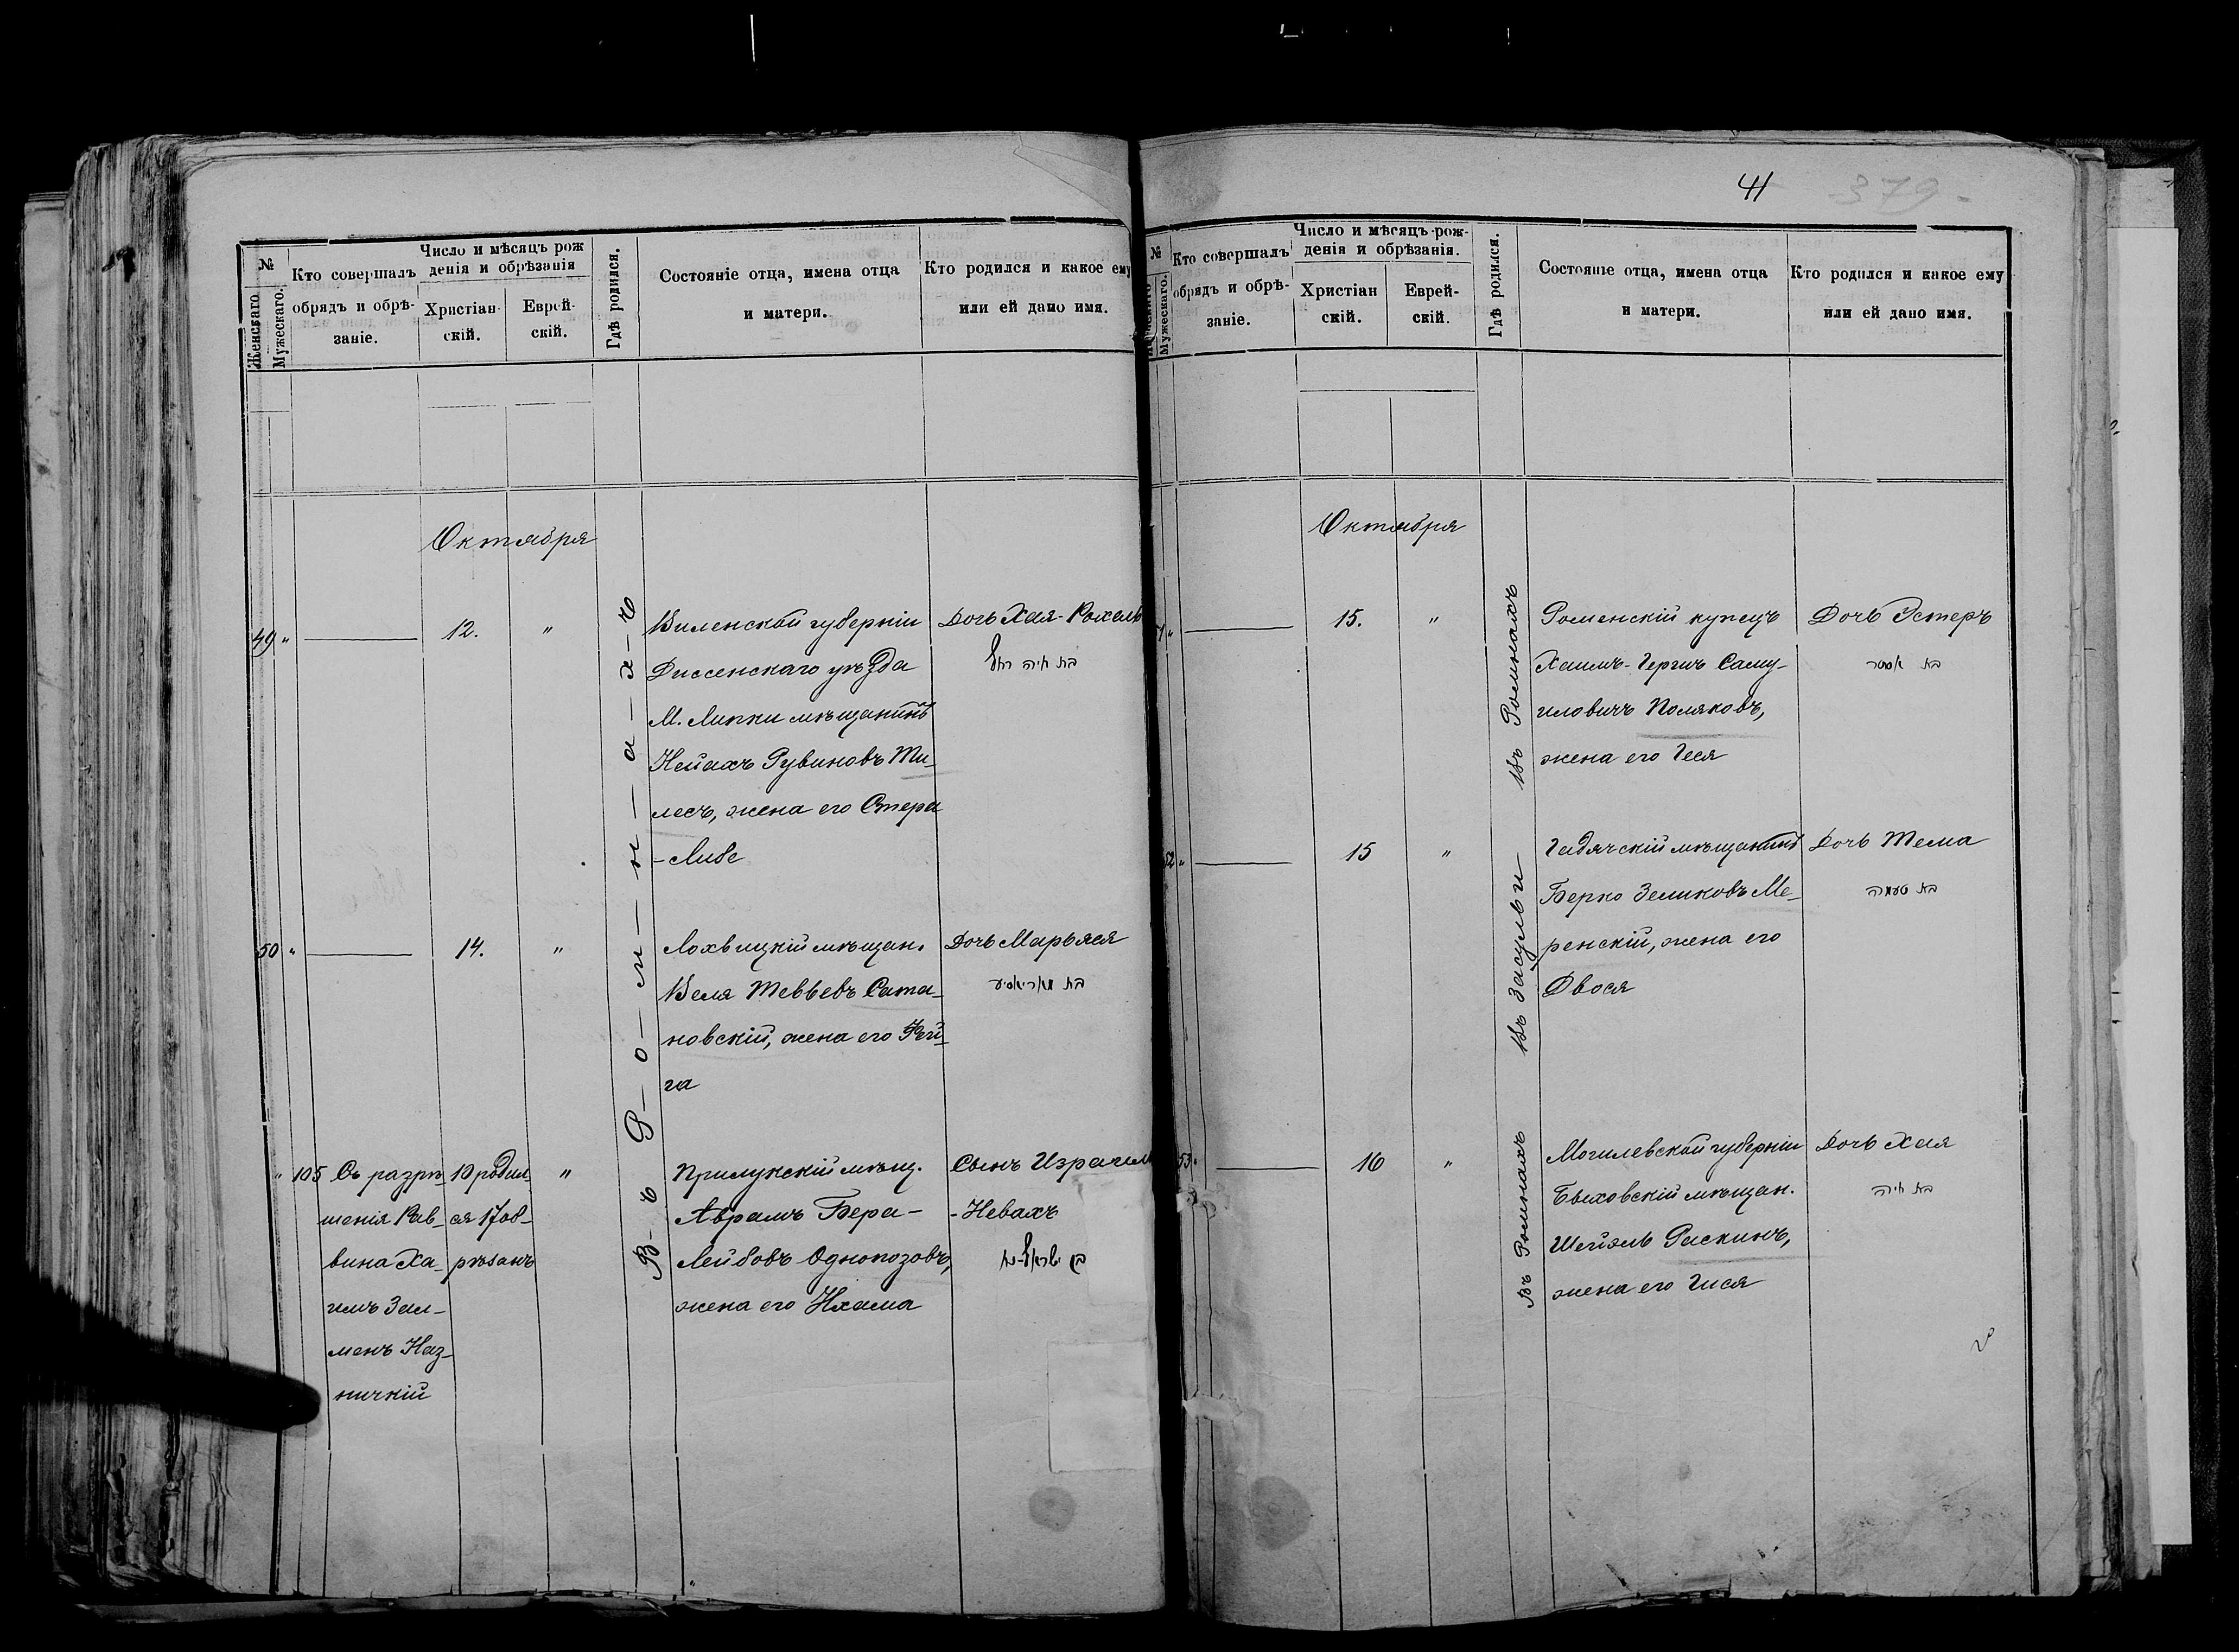 41
379
№
Женскаго.
Мужескаго.
Кто совершалъ
обрядъ и обрѣ-
заніе.
Число и мѣсяцъ рож
денія и обрѣзанія
Христіан-
скій.
Еврей-
скій.
Гдѣ родился.
Состояніе отца, имена отца
и матери.
Кто родился и какое ему
или ей дано имя.
Октября
В-ъ Р-о-м-н-а-х-ъ
49 " 12. "
Виленской губерніи
Диссенскаго уѣзда
М. Липки мѣщанинъ
Нейахъ Рувиновъ Ми-
лесъ, жена его Стера
-Либе
Дочь Хая-Рохель
בת חיה רחל
50 " 14. "
Лохвицкій мѣщан.
Веля Тевьевъ Сата-
новскій, жена его Фей-
га
Дочь Марьяся
בת מאריאסיע
" 105
Съ разрѣ-
шенія Рав-
вина Ха-
имъ Зал-
менъ Наз-
ничкій
10 родил
ся 17 об-
рѣзанъ
"
Прилукскій мѣщ.
Аврамъ Бера-
Лейбовъ Однопозовъ,
жена его Нхама
Сынъ Израель
-Невахъ
№
Мужескаго.
Кто совершалъ
обрядъ и обрѣ-
заніе.
Число и мѣсяцъ рож-
денія и обрѣзанія.
Христіан
скій.
Еврей-
скій.
Гдѣ родился.
Состояніе отца, имена отца
и матери.
Кто родился и какое ему
или ей дано имя.
Октября
15. "
Въ Ромнахъ
Роменскій купецъ
Хаимъ-Гершъ Саму-
иловичъ Поляковъ,
жена его Геся
Дочь Эстеръ
בת אסתר
52 " 15 "
Въ Засульи
Гадячскій мѣщанинъ
Берко Зеликовъ Ме-
ренскій, жена его
Двося
Дочь Тема
בת טעמה
53 " 16 "
Въ Ромнахъ
Могилевской губерніи
Быховскій мѣщан.
Шейэль Раскинъ,
жена его Гися
Дочь Хая
בת חיה